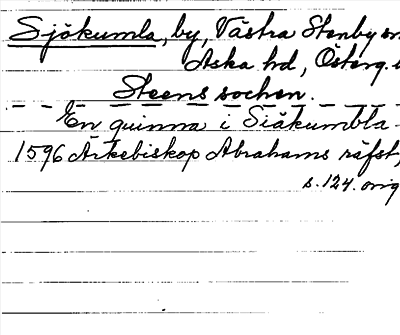 Sjökumla, by, Västra Stenby sn
Aska hd, Österg.
Steens sochen.
En quinna i Siäkumbla
1596 Ärkebiskop Abrahams räfst,
s. 124. orig